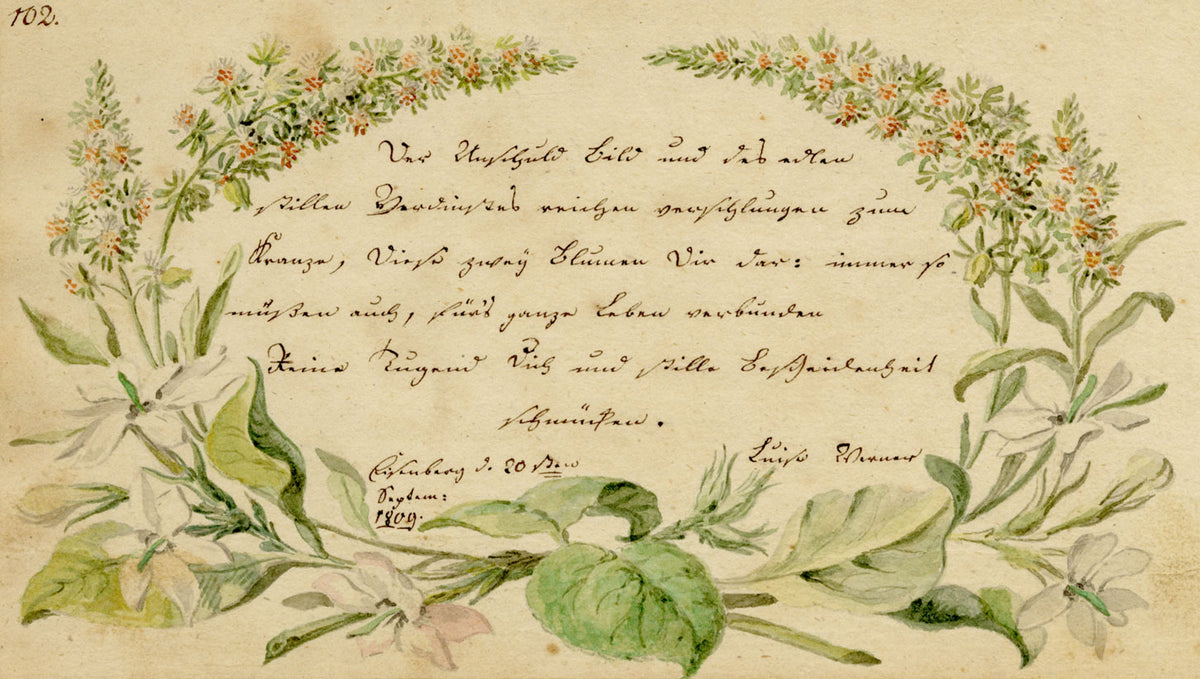 102.
Der Unschuld Bild und des edlen
stillen Verdinstes reichen verschlungen zum
Kranze, Diese zwey Blumen Dir dar: immer so
müßen auch, fürs ganze Leben verbunden
Reine Tugend Dich und stille Bescheidenheit
schmücken.
Eisenberg d. 20 sten
Septem:
1809.
Luise Werner